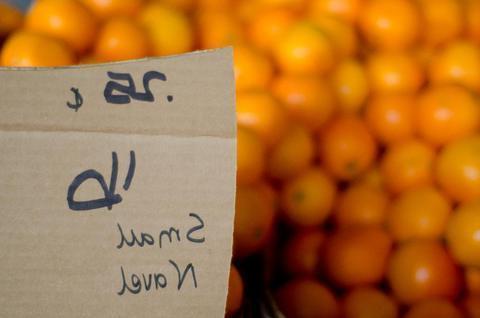 .25 ¢
lb
Small
Navel